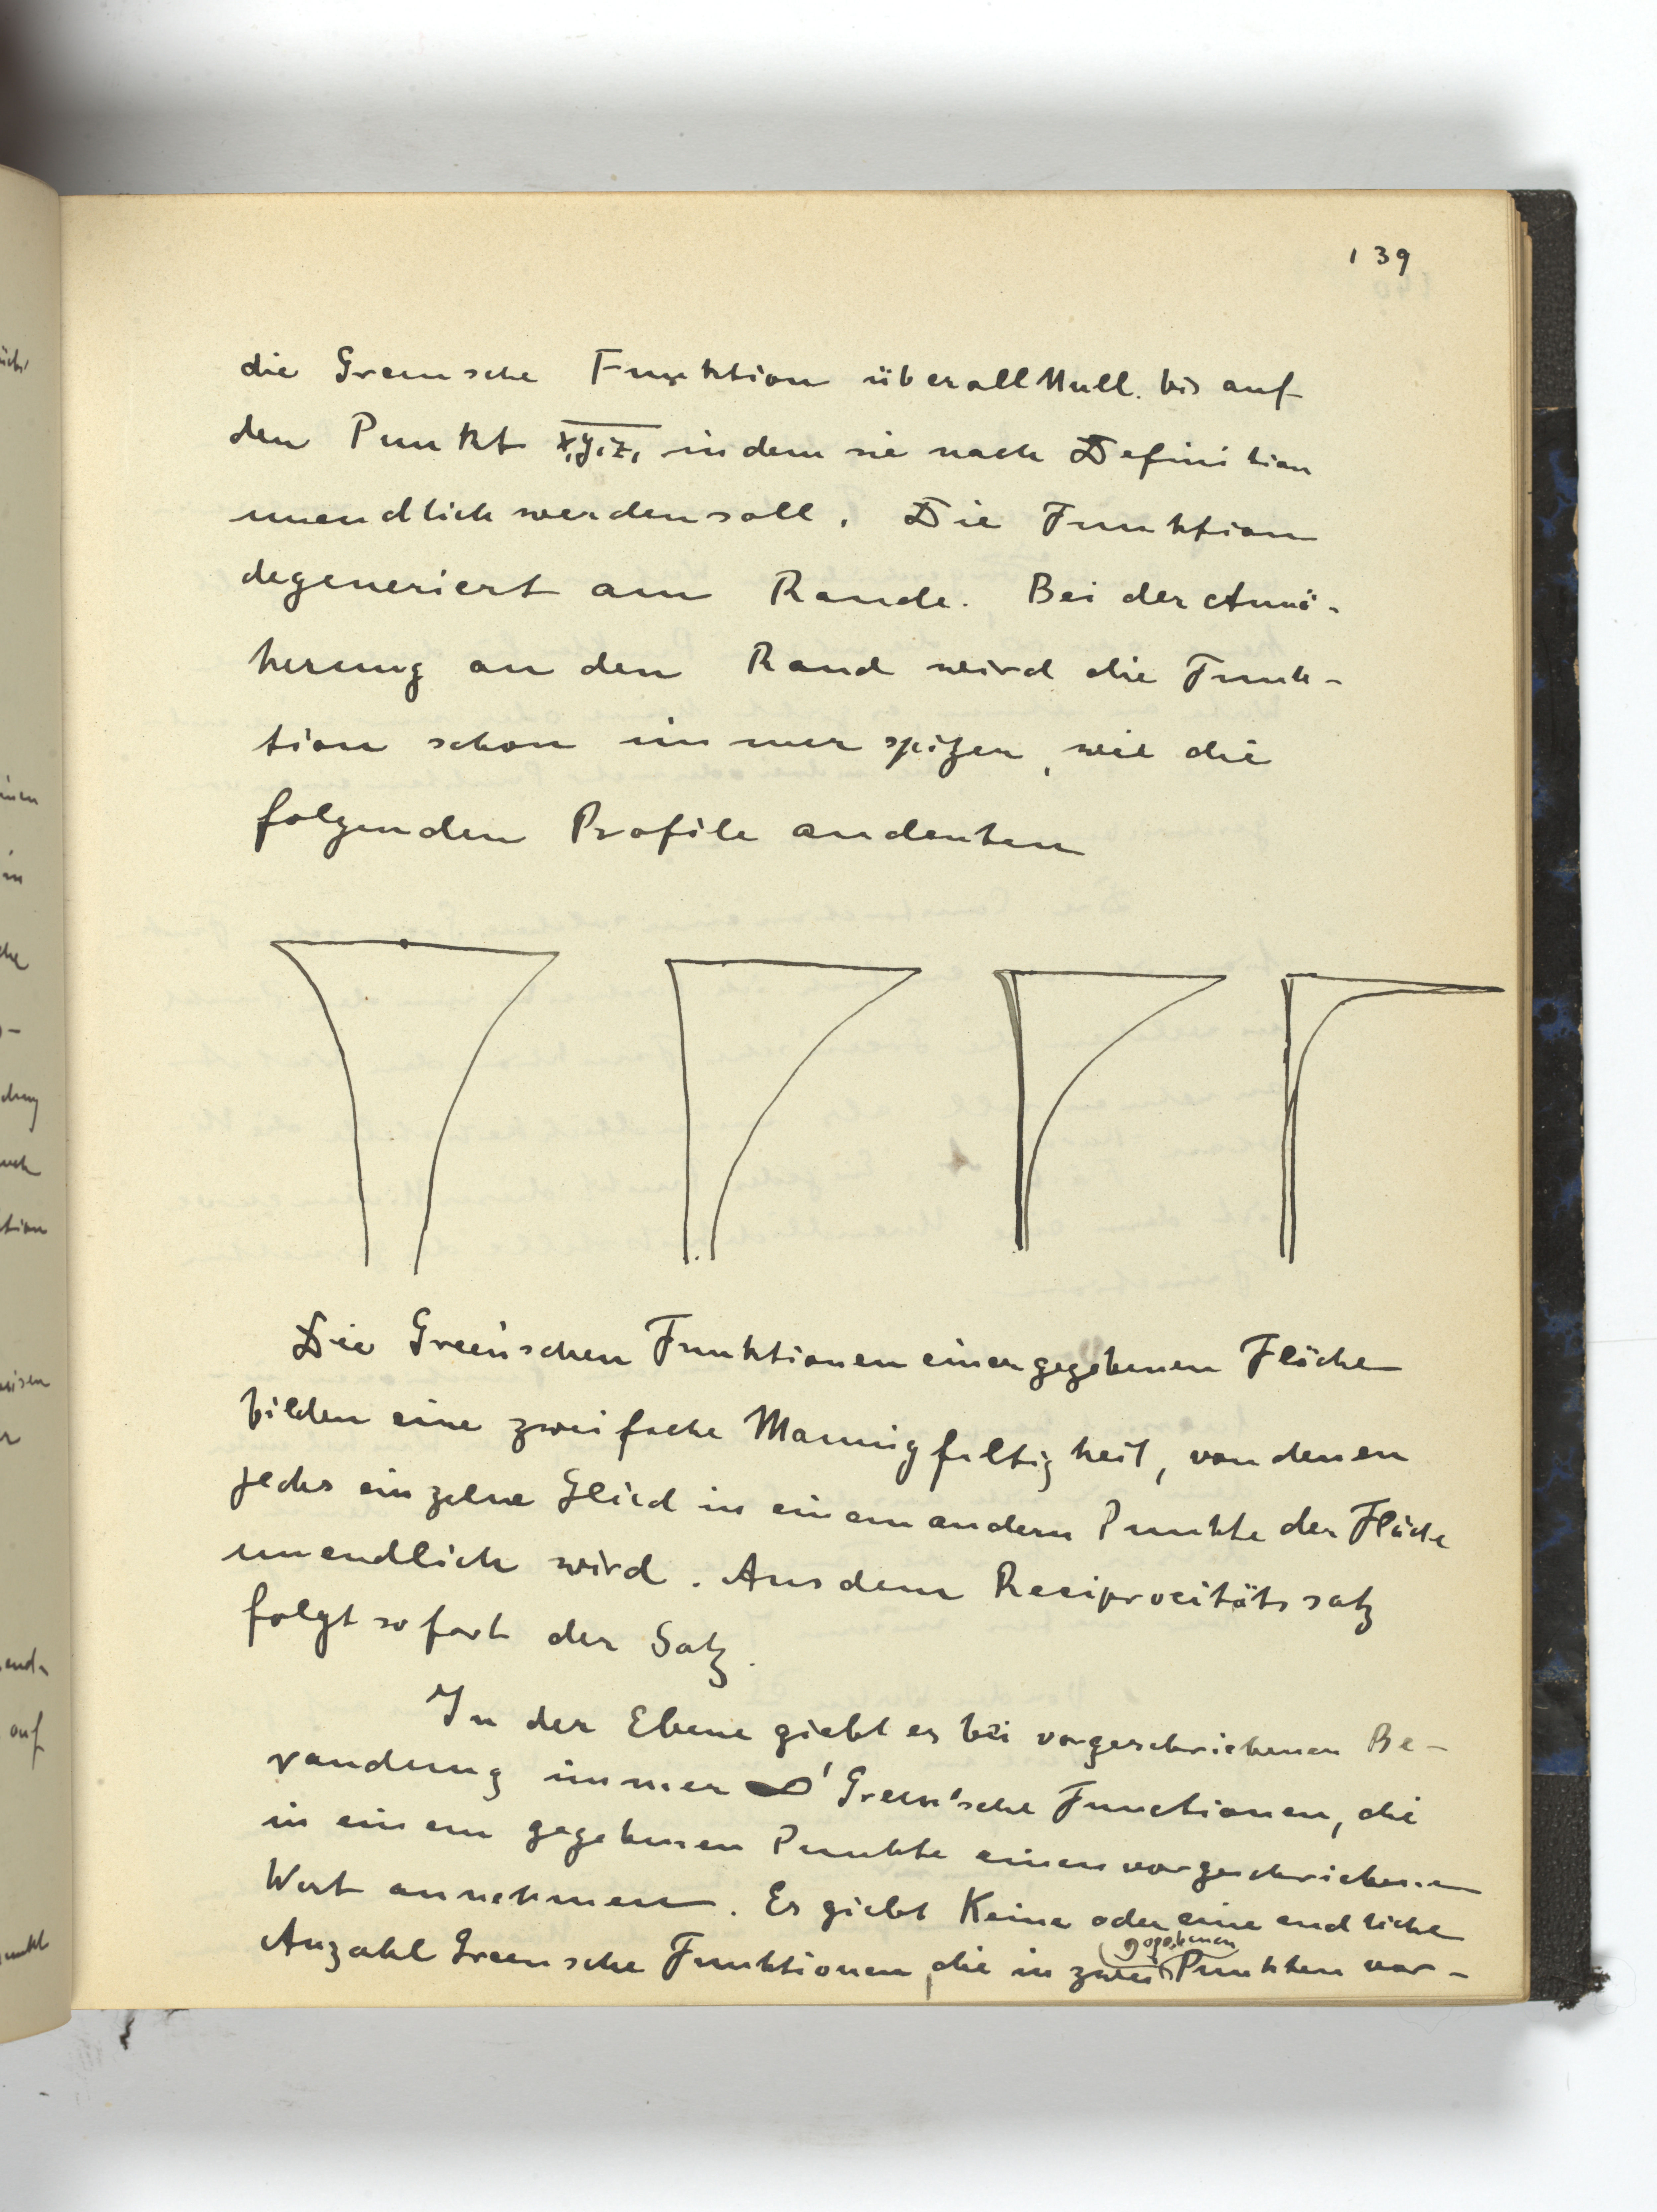 139
die Greensche Funktion überall Null bis auf
den Punkt x₁y₁z₁ in dem sie nach Definition
unendlich werden soll. Die Funktion
degeneriert am Rande. Bei der Annä-
herung an den Rand wird die Funk-
tion schon immer spitzer, wie die
folgenden Profile andeuten
Die Green'schen Funktionen einer gegebenen Fläche
bilden eine zweifache Mannigfaltigkeit, von denen
jedes einzelne Glied in einem andern Punkte der Fläche
unendlich wird. Aus dem Reciprocitätssatz
folgt sofort der Satz.
In der Ebene giebt es bei vorgeschriebenen Be-
randung immer ∞¹ Green'sche Functionen, die
in einem gegebenen Punkte einen vorgeschriebenen
Wert annehmen. Es giebt Keine oder eine endliche
Anzahl Greensche Funktionen, die in zwei gegebenen Punkten vor-